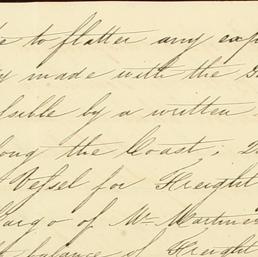 to flatter any exp
made with the
by a written
the Coast; 2
Vessel for Freight
of Mr. Martine
balance of Freight